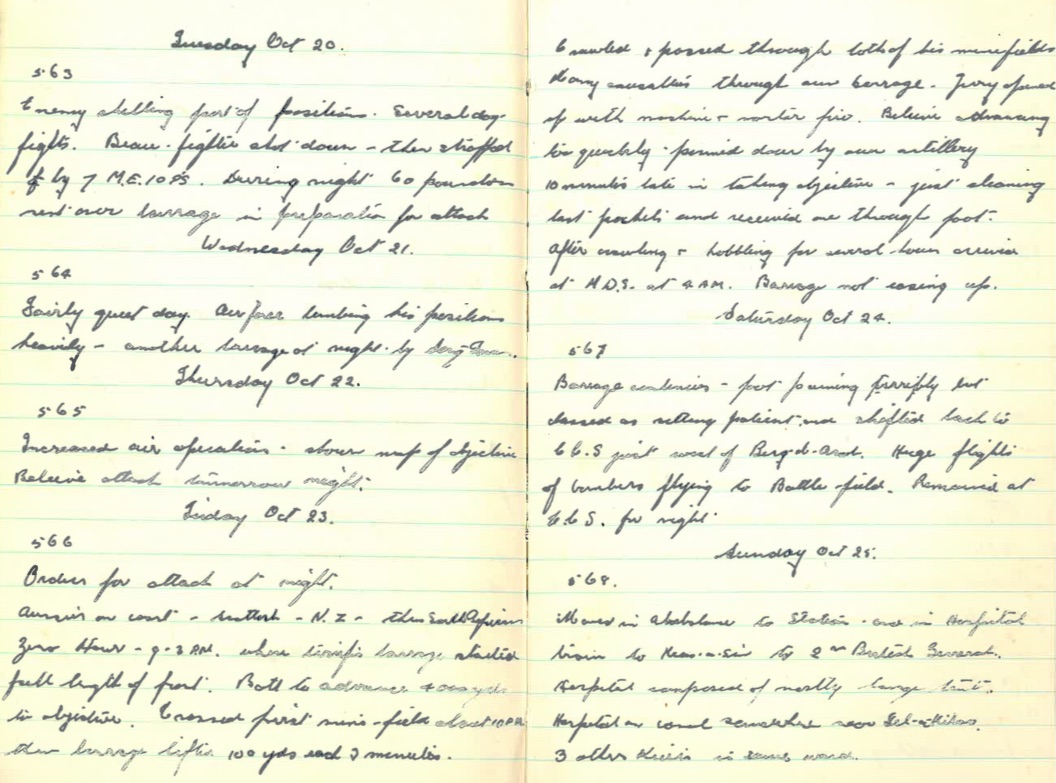 Tuesday Oct 20.
563
Enemy shelling part of positions. Several dog-
fights. Beau-fighter shot down - then straffed
by 7 M.E.109s. During night 60 pounders
sent over barrage in preparation for attack
Wednesday Oct 21.
564
Fairly quiet day. Air force bombing his positions
heavily - another barrage at night by
Thursday Oct 22.
565
Increased air operation - shown map of objective
Believe attack tomorrow night.
Friday Oct 23.
566
Orders for attack at night.
Aussies on coast - - N.Z - then South Africans
Zero Hour - 9-3 PM. where terrific barrage started
full length of front. Batt to advance yds
to objective. Crossed first mine-field about 10 PM
then barrage lifts 100 yds each 3 minutes.
Crawled + passed through both of his minefields
Many casualties through our barrage. Jerry opened
up with machine + mortar fire. Believe advancing
too quickly - pinned down by our artillery
10 minutes late in taking objective - just cleaning
last pockets and received one through foot.
After crawling + hobbling for several hours arrived
at M.D.S. at 4 AM. Barrage not easing up.
Saturday Oct 24.
567
Barrage continues - foot paining terribly but
classed as sitting patient and shifted back to
C.C.S just west of Burg-el-Arab. Huge flights
of bombers flying to Battle-field. Remained at
C.C.S. for night
Sunday Oct 25.
568.
Moved in Ambulance to Station - and in Hospital
train to to 2nd British General.
Hospital composed of mostly large tents.
Hospital on canal somewhere near
3 other Kiwis in same ward.